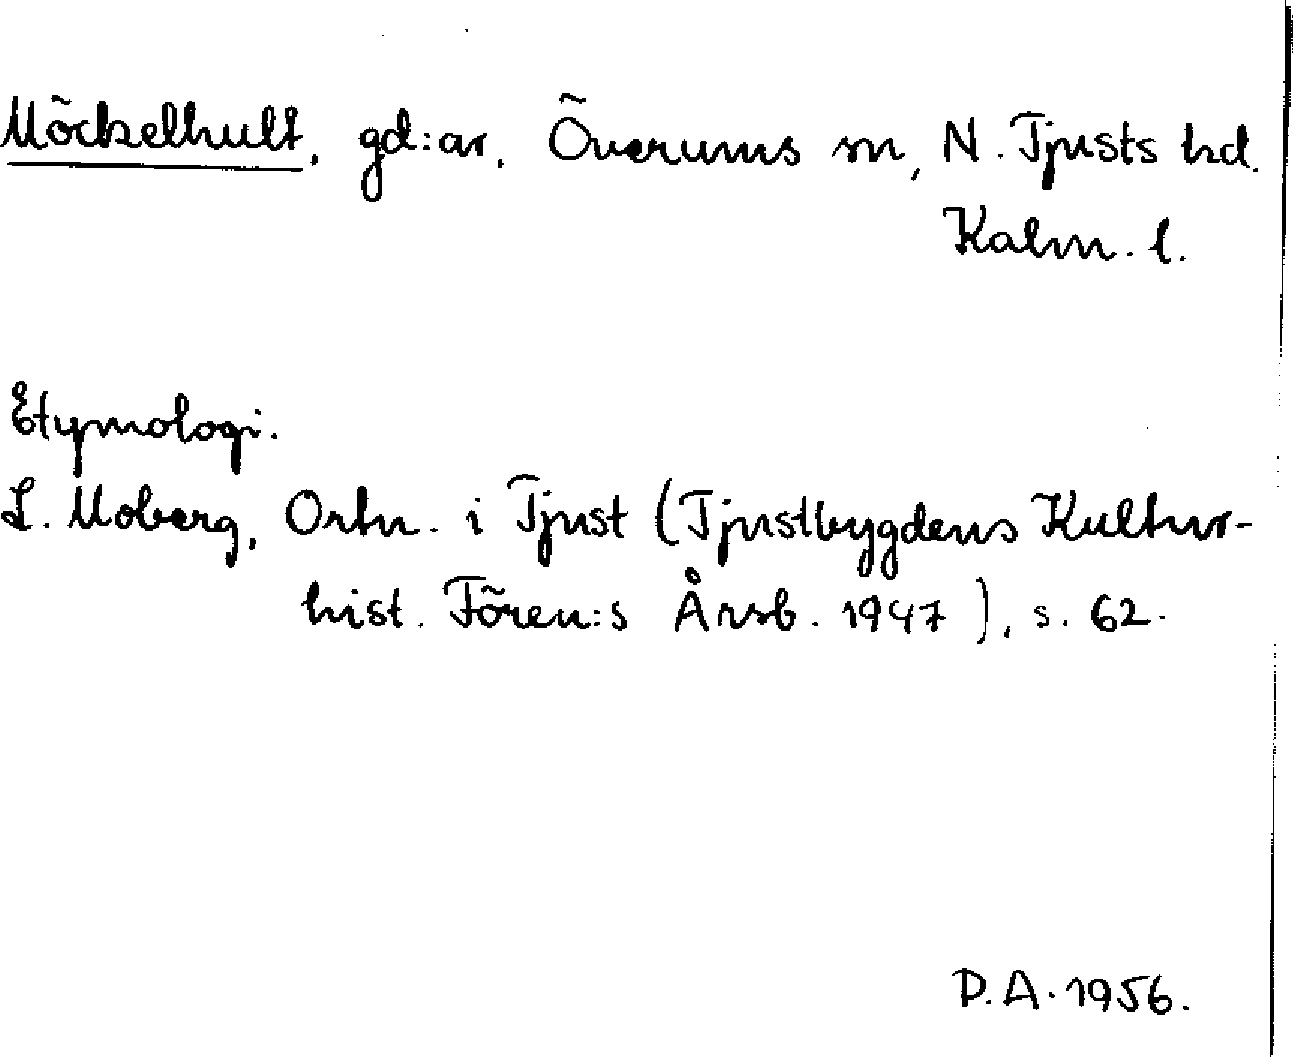 Möckelhult, gd:ar, Överums sn, N. Tjusts hd.
Kalm. l.
Etymologi.
L. Moberg, Ortn. i Tjust (Tjustbygdens Kultur-
hist. Fören:s Årsb. 1947), s. 62.
D.A. 1956.